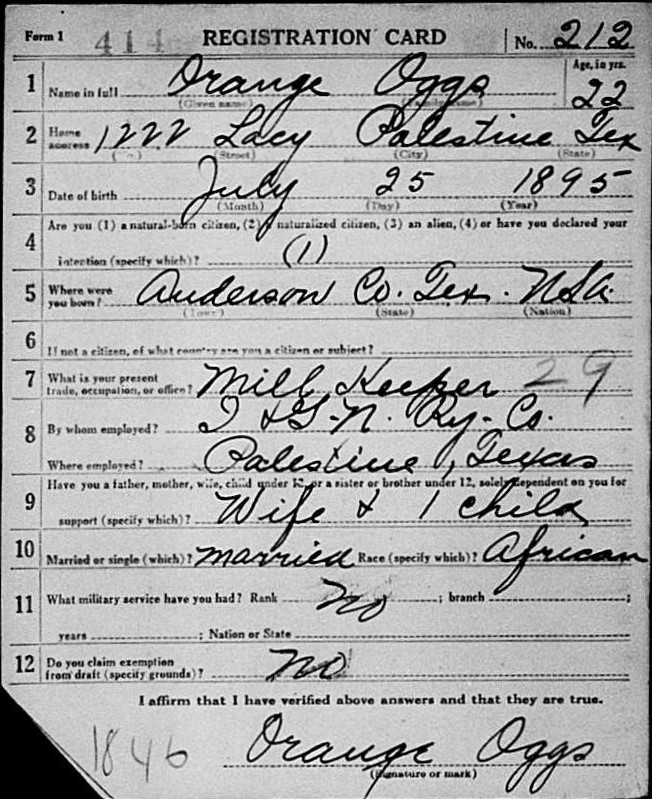 Form 1 414 REGISTRATION CARD No. 212
1 Name in full Orange Oggs Age, in yrs. 22
(Given name) (Family name)
2 Home address 1222 Lacy Palestine Tex
(No.) (Street) (City) (State)
3 Date of birth July 25 1895
(Month) (Day) (Year)
4 Are you (1) a natural-born citizen, (2) a naturalized citizen, (3) an alien, (4) or have you declared your
intention (specify which)? (1)
5 Where were you born? Anderson Co. Tex. USA.
(Town) (State) (Nation)
6 If not a citizen, of what country are you a citizen or subject?
7 What is your present trade, occupation, or office? Mill Keeper 29
8 By whom employed? I & G. N. Ry. Co.
Where employed? Palestine, Texas
9 Have you a father, mother, wife, child under 12, or a sister or brother under 12, solely dependent on you for
support (specify which)? Wife & 1 child
10 Married or single (which)? married Race (specify which)? African
11 What military service have you had? Rank no ; branch ;
years ; Nation or State
12 Do you claim exemption from draft (specify grounds)? No
I affirm that I have verified above answers and that they are true.
1846 Orange Oggs
(Signature or mark)